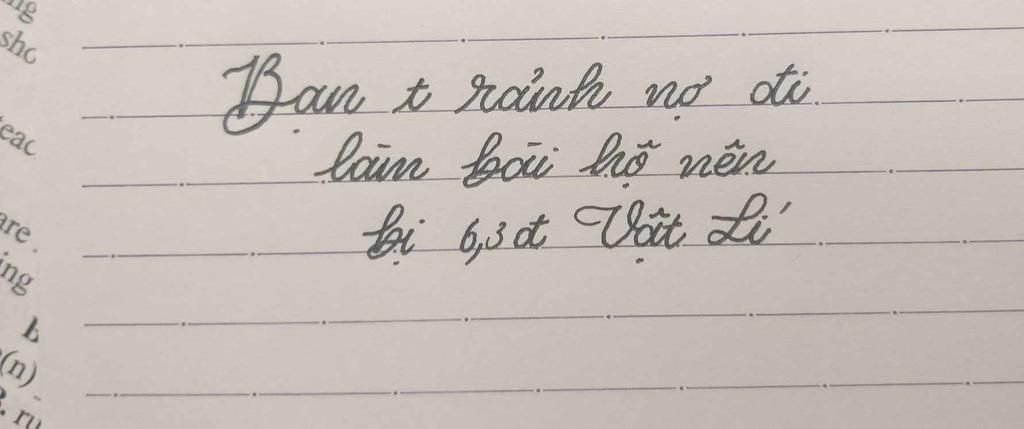 ng
sho
teac
are.
ing
b
(n)
3. ru
Bạn t rảnh nợ đi
làm bài hộ nên
bị 6,3đ Vật Lí